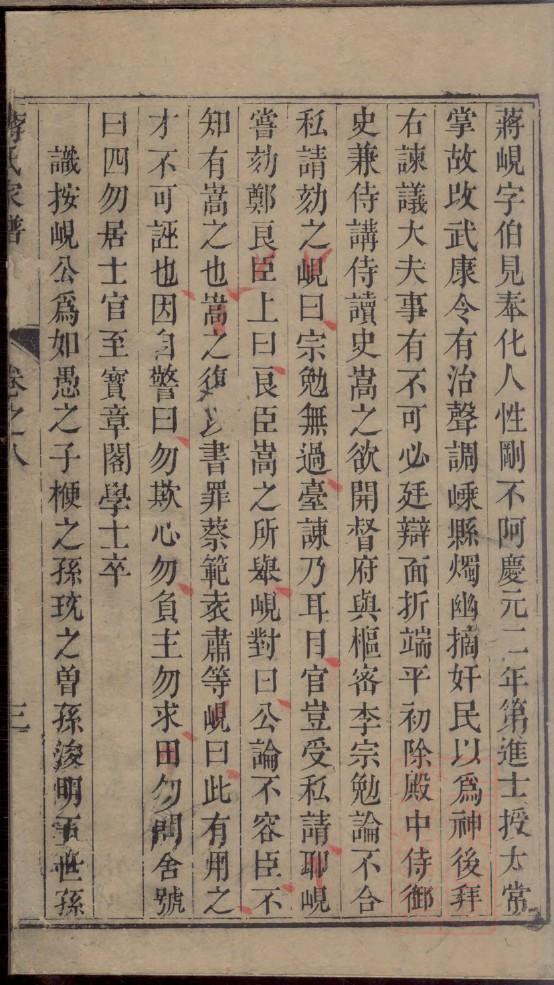 蔣峴字伯見奉化人性剛不阿慶元二年第進士授太常
掌故改武康令有治聲調嵊縣燭幽摘奸民以爲神後拜
右諫議大夫事有不可必廷辯面折端平初除殿中侍御
史兼侍講侍讀史嵩之欲開督府與樞密李宗勉論不合
私請劾之峴曰宗勉無過臺諫乃耳目官豈受私請耶峴
嘗劾鄭良臣上曰良臣嵩之所舉峴對曰公論不容臣不
知有嵩之也嵩之復以書罪蔡範袁肅等峴曰此有用之
才不可誣也因自警曰勿欺心勿負主勿求田勿問舍號
曰四勿居士官至寶章閣學士卒
識按峴公爲如愚之子楩之孫玧之曾孫浚明五世孫
蔣氏家譜 卷之八 三